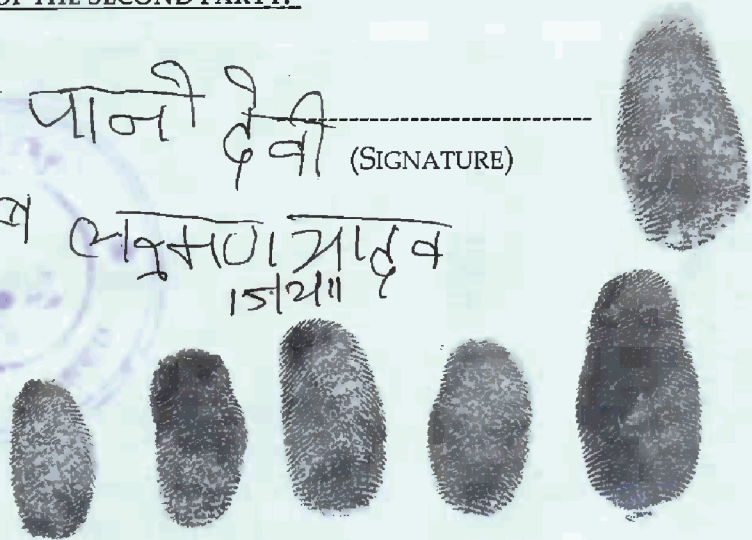 OF THE SECOND PARTY:
पानो देवी (SIGNATURE)
लक्ष्मण यादव